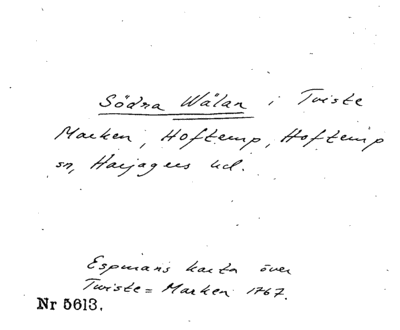 Södra Wålan i Tviste
Marken, Hofterup, Hofterup
sn, Harjagers hd.
Espmans karta över
Twiste=Marken 1767.
Nr 5613.